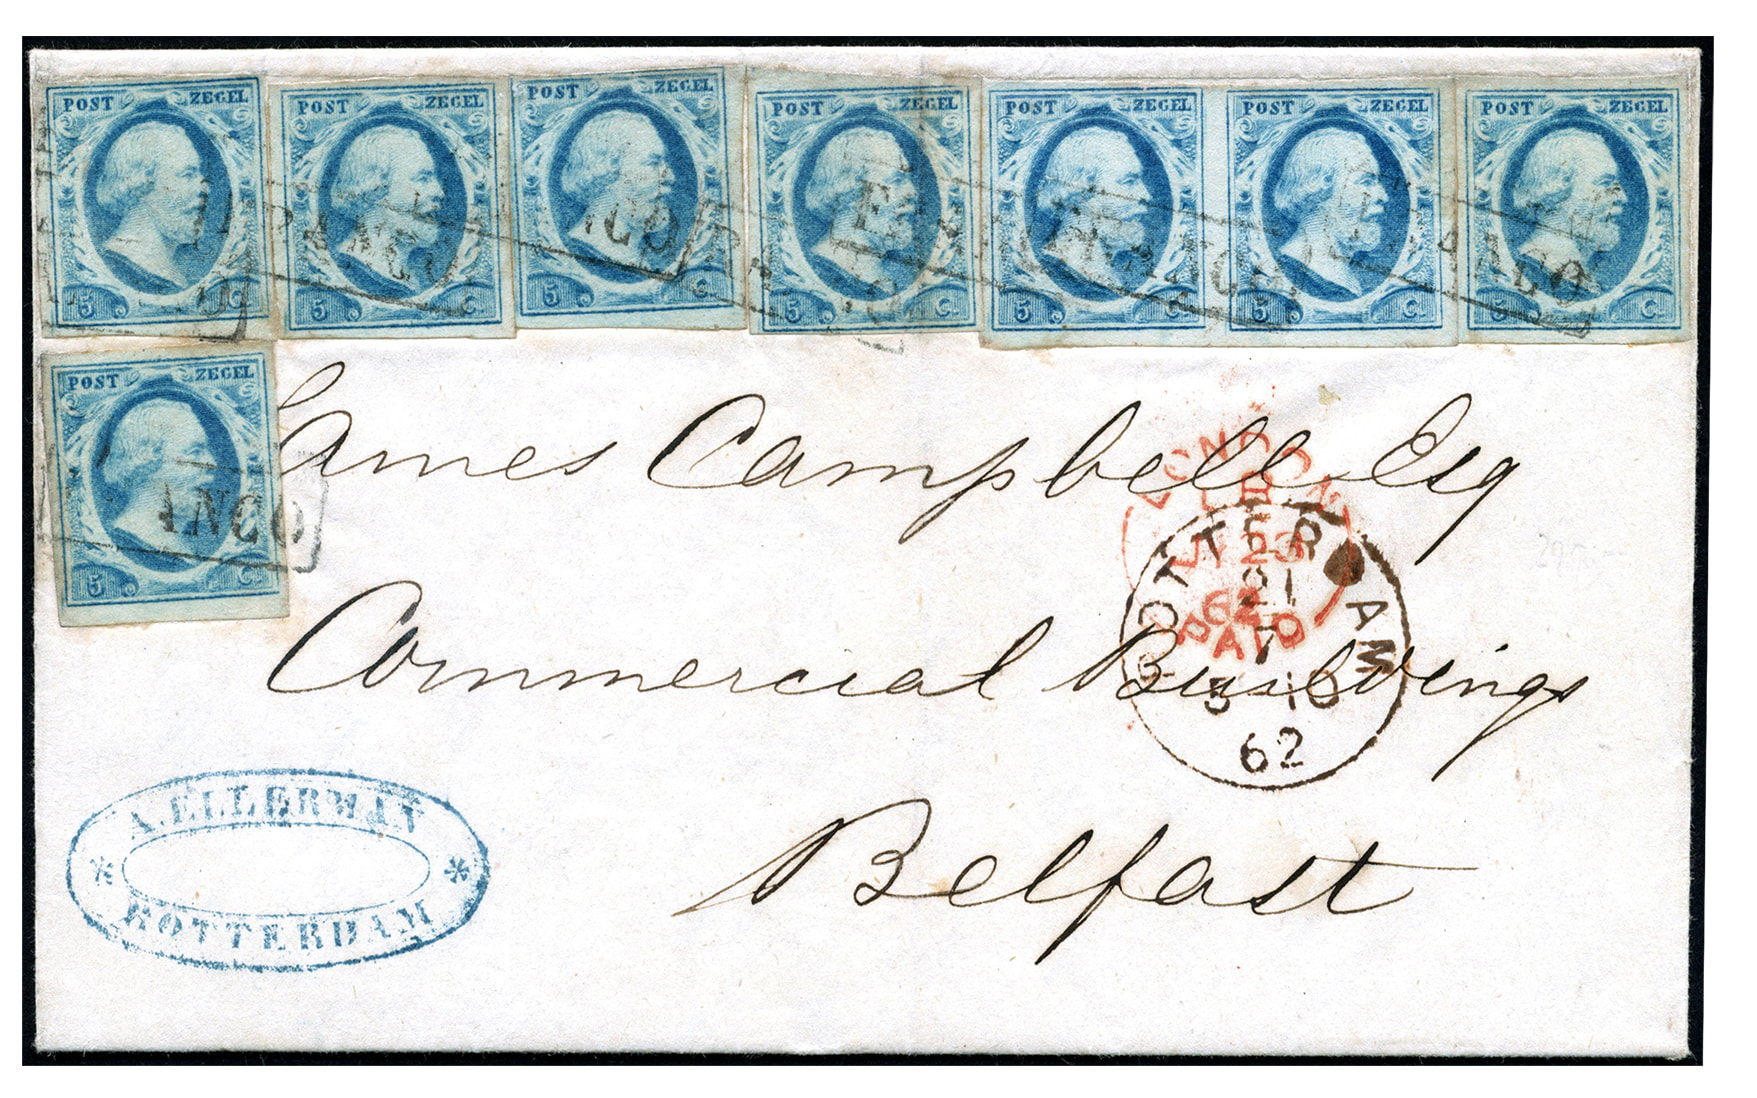 POST ZEGEL POST ZEGEL POST ZEGEL POST ZEGEL POST ZEGEL POST ZEGEL POST ZEGEL
FRANCO FRANCO
5 C. 5 C. 5 C. 5 C. 5 C. 5 C. 5 C.
POST ZEGEL
ANCO
5 C.
James Campbell Esq
Commercial Buildings
Belfast
LONDON
23
62
PAID
ROTTERDAM
21
7
5 10
62
A. ELLERMAN
ROTTERDAM